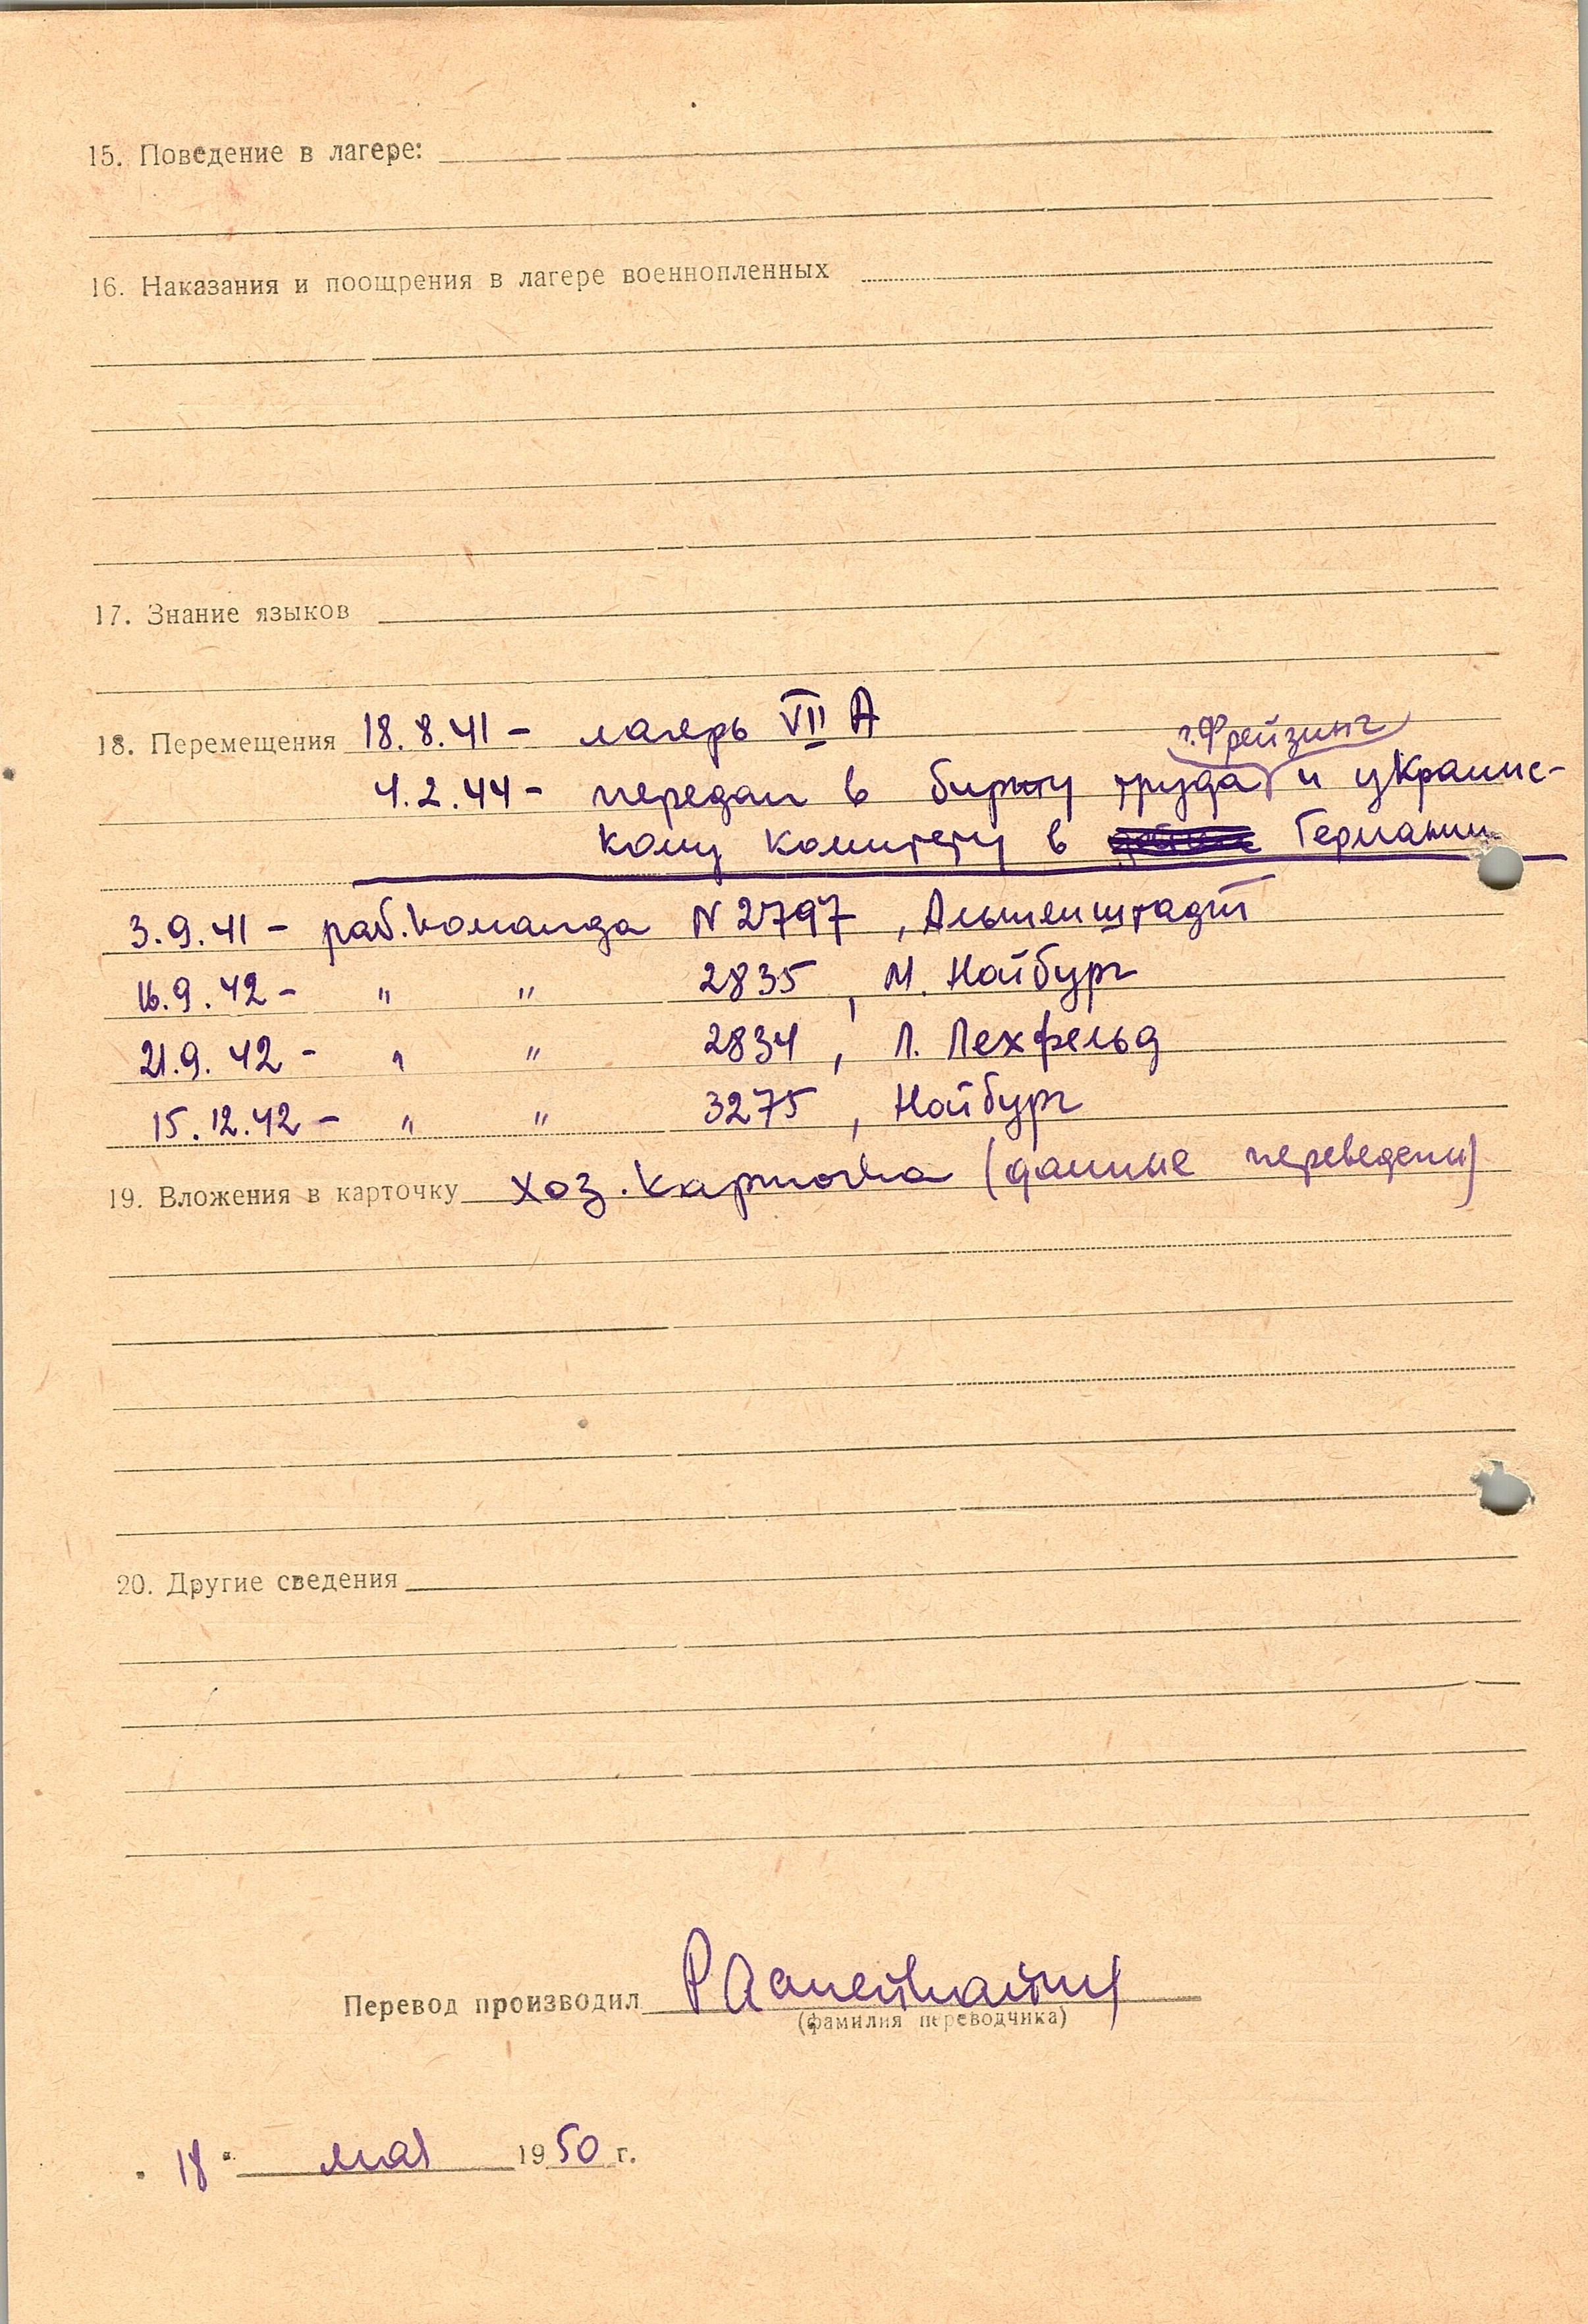 15. Поведение в лагере:
16. Наказания и поощрения в лагере военнопленных
17. Знание языков
18. Перемещения 18.8.41 – лагерь VII A
г. Фрейзинг
4.2.44 – передан в биржу труда и украинс-
кому комитету в Германии
3.9.41 – раб. команда N 2797,
16.9.42 – " " 2835, М. Нойбург
21.9.42 – " " 2834, Л. Лехфельд
15.12.42 – " " 3275, Нойбург
19. Вложения в карточку хоз. карточка (данные переведены)
20. Другие сведения
Перевод производил
(фамилия переводчика)
"18" мая 1950 г.